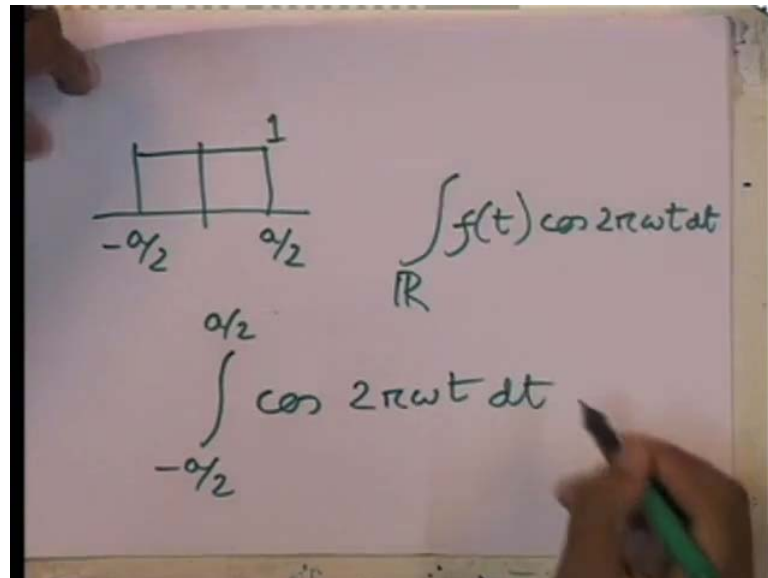 1
-a/2 a/2
∫ℝ f(t) cos 2πωt dt
∫_{-a/2}^{a/2} cos 2πωt dt